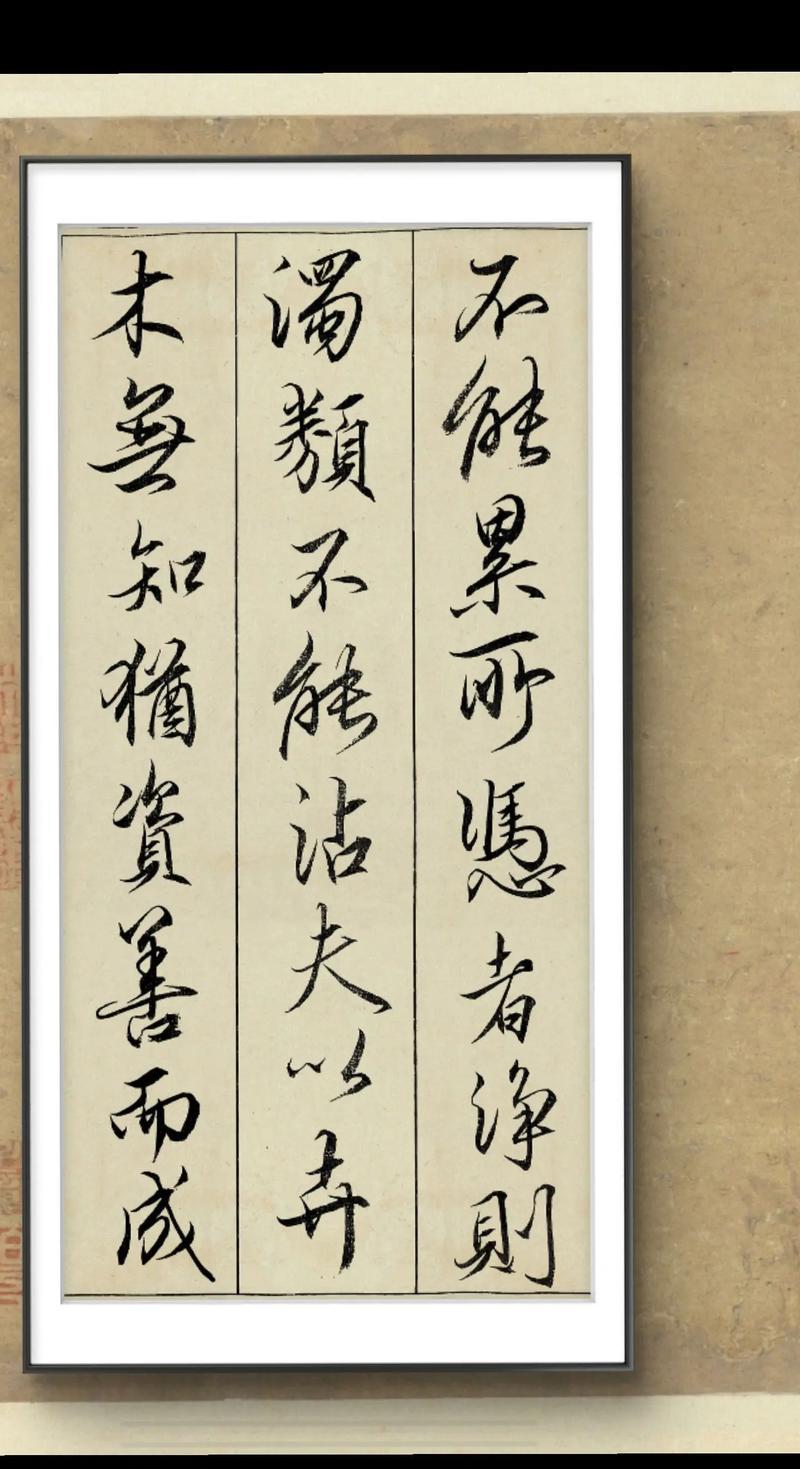 不能累所憑者淨則
濁類不能沾夫以卉
木無知猶資善而成